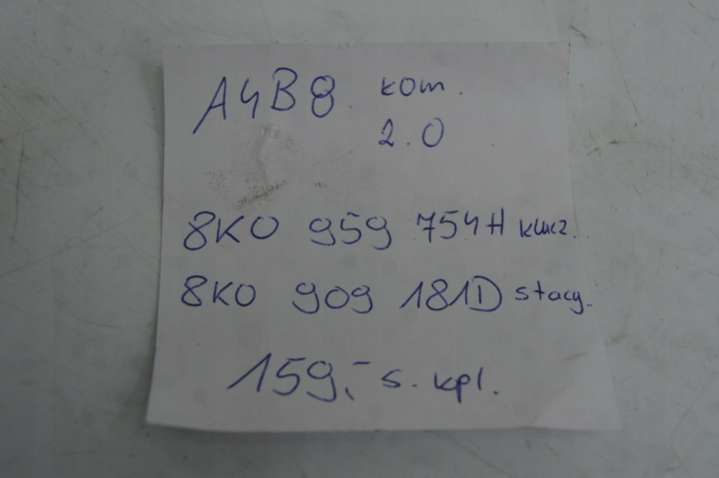 A4B8 kom.
2.0
8K0 959 754H klucz.
8K0 909 181D stacy.
159,- s. kpl.